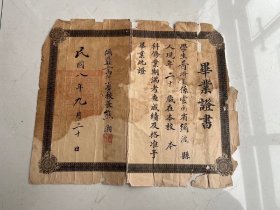 畢業證書
學生 係雲南省彌渡縣
人現年二十 歲在本校 本
科修業期滿考查成績及格准予
畢業此證
校長熊
民國八年九月二十日